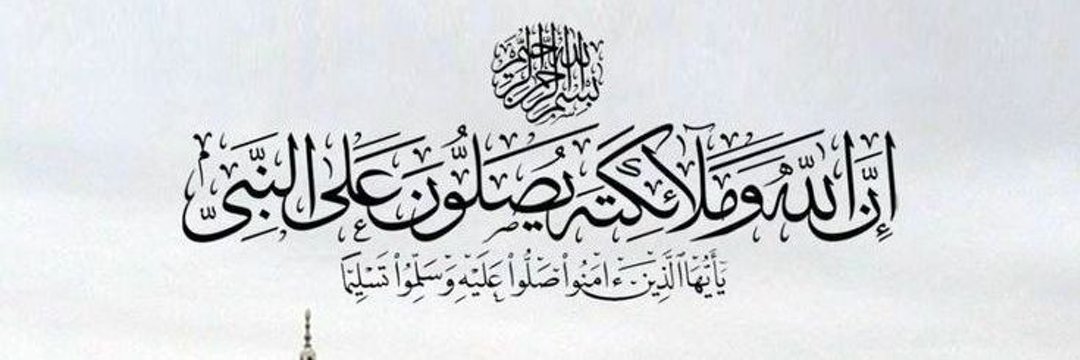 بسم الله الرحمن الرحيم
إِنَّ اللَّهَ وَمَلَائِكَتَهُ يُصَلُّونَ عَلَى النَّبِيِّ
يَٰٓأَيُّهَا ٱلَّذِينَ ءَامَنُوا۟ صَلُّوا۟ عَلَيْهِ وَسَلِّمُوا۟ تَسْلِيمًا